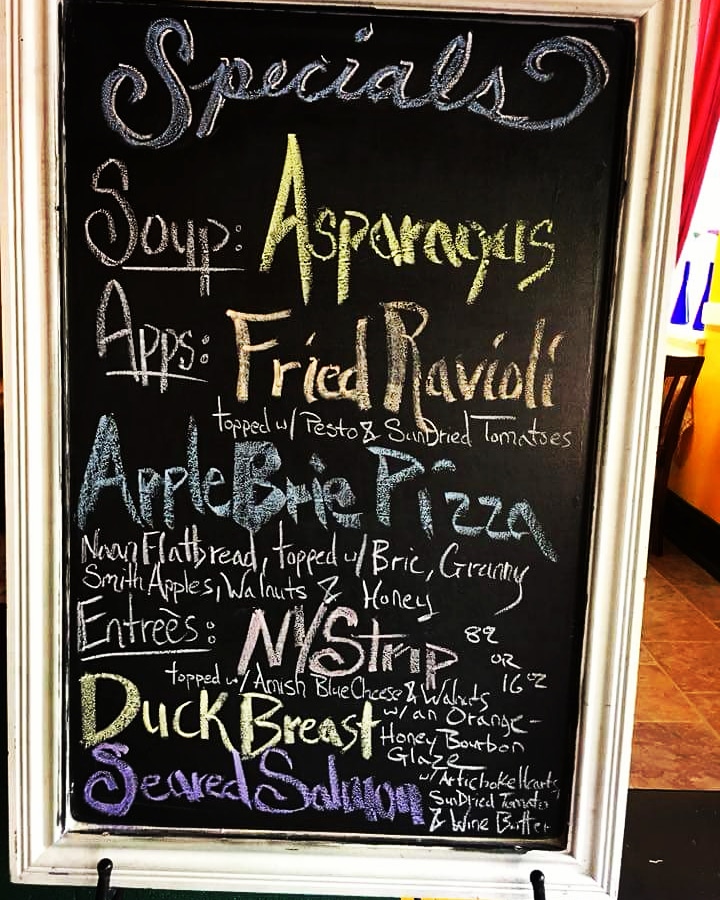 Specials
Soup: Asparagus
Apps: Fried Ravioli
topped w/ Pesto & SunDried Tomatoes
Apple Brie Pizza
Naan Flatbread, topped w/ Brie, Granny
Smith Apples, Walnuts & Honey
Entreès: NY Strip 8oz or 16oz
topped w/ Amish Blue Cheese & Walnuts
Duck Breast w/ an Orange-
Honey Bourbon
Glaze
Seared Salmon w/ Artichoke Hearts,
SunDried Tomato
& Wine Butter